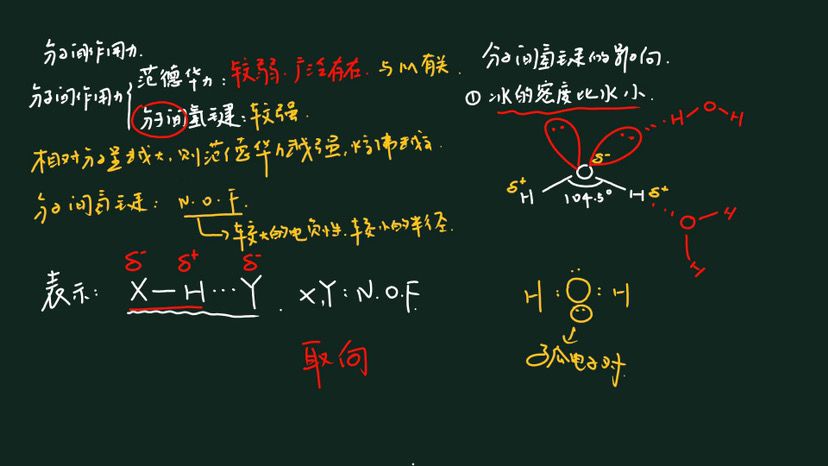 分子间作用力.
分子间作用力
范德华力：较弱.广泛存在.与M有关.
分子间氢键：较强.
相对分子量越大,则范德华力越强,熔沸越高
分子间氢键： N.O.F.
较大的电负性.较小的半径.
δ⁻ δ⁺ δ⁻
表示： X—H…Y . X,Y：N.O.F.
取向
分子间氢键的取向.
① 冰的密度比水小.
H O H
δ⁻
δ⁺ H O H δ⁺
104.5°
O H
H
H : O : H
孤电子对.